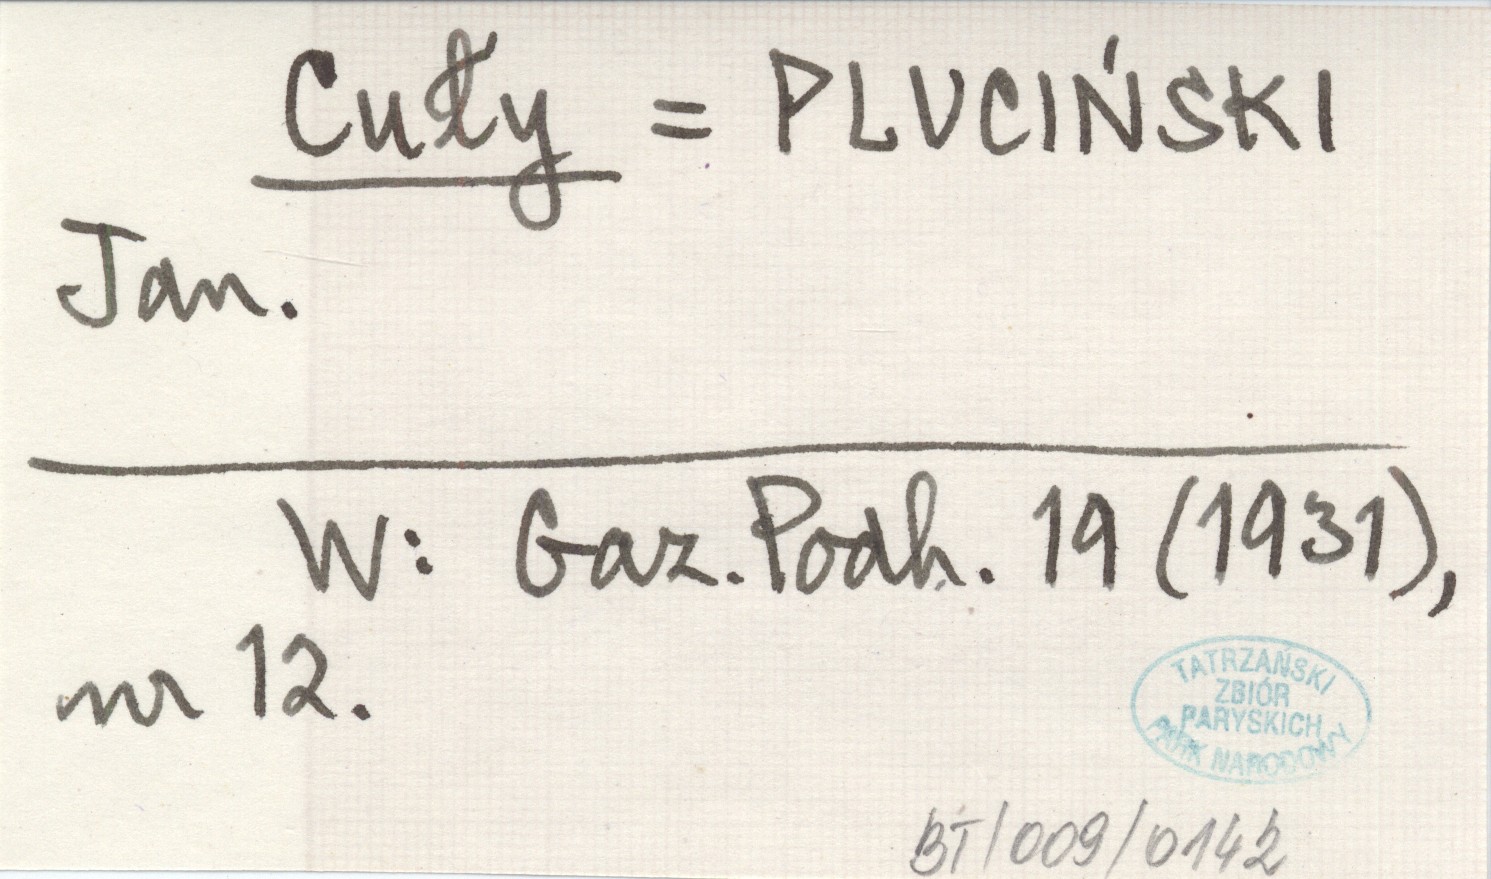 Cuły = PLUCIŃSKI
Jan.
W: Gaz. Podh. 19 (1931),
nr 12.
TATRZAŃSKI
ZBIÓR
PARYSKICH
PARK NARODOWY
BT/009/0142